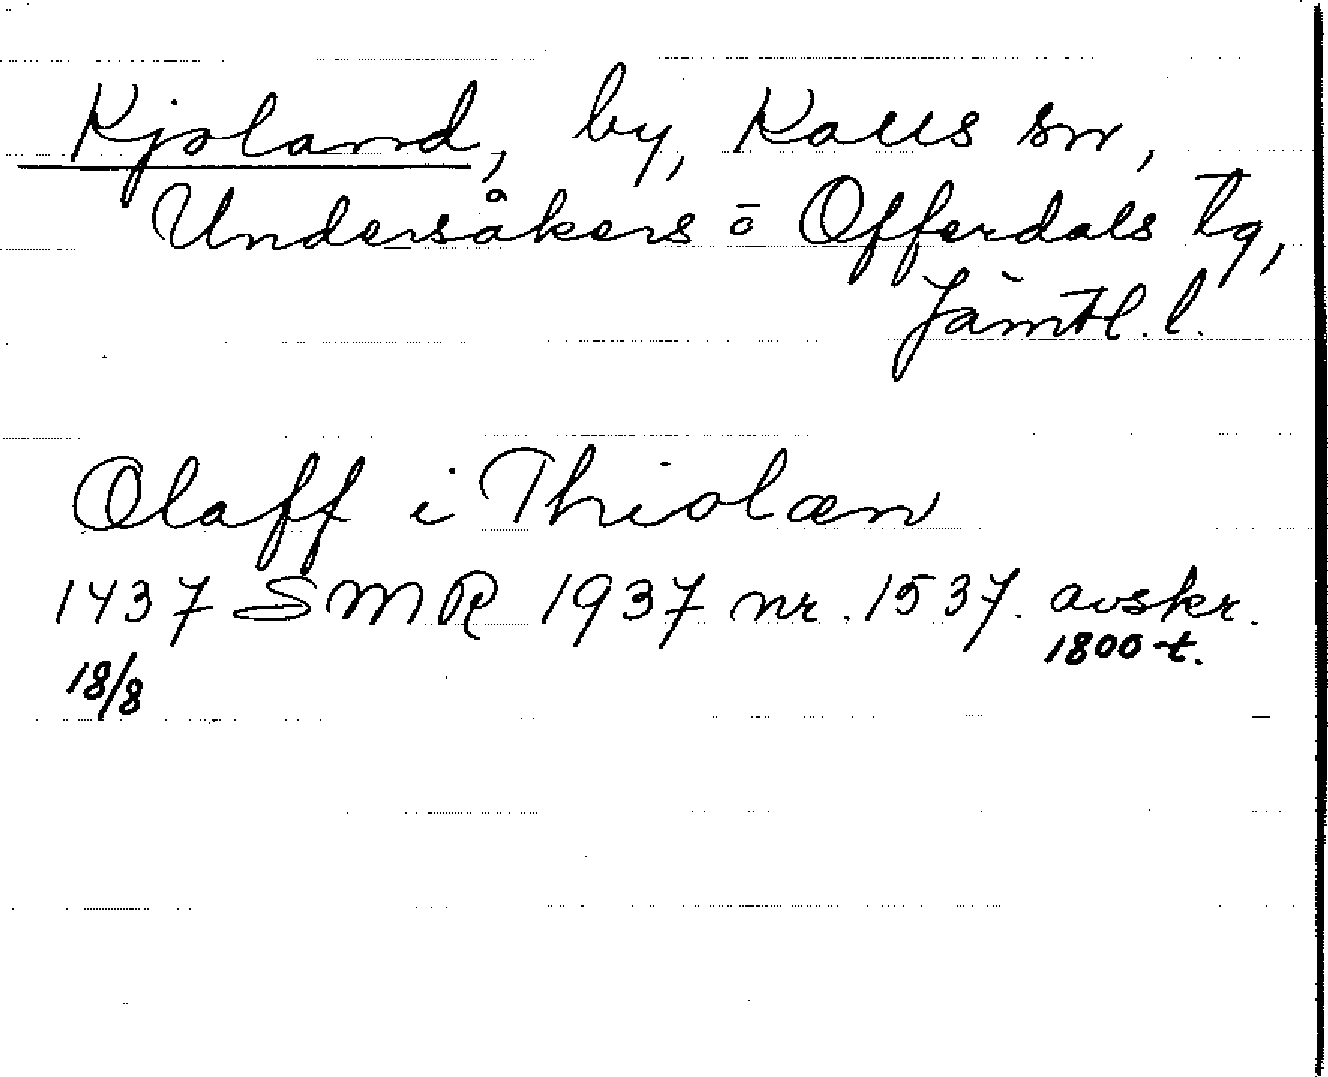 Kjoland, by, Kalls sn,
Undersåkers o Offerdals tg,
Jämtl. l.
Olaff i Thiolæn
1437 SMR 1937 nr. 1537. avskr.
18/8 1800-t.